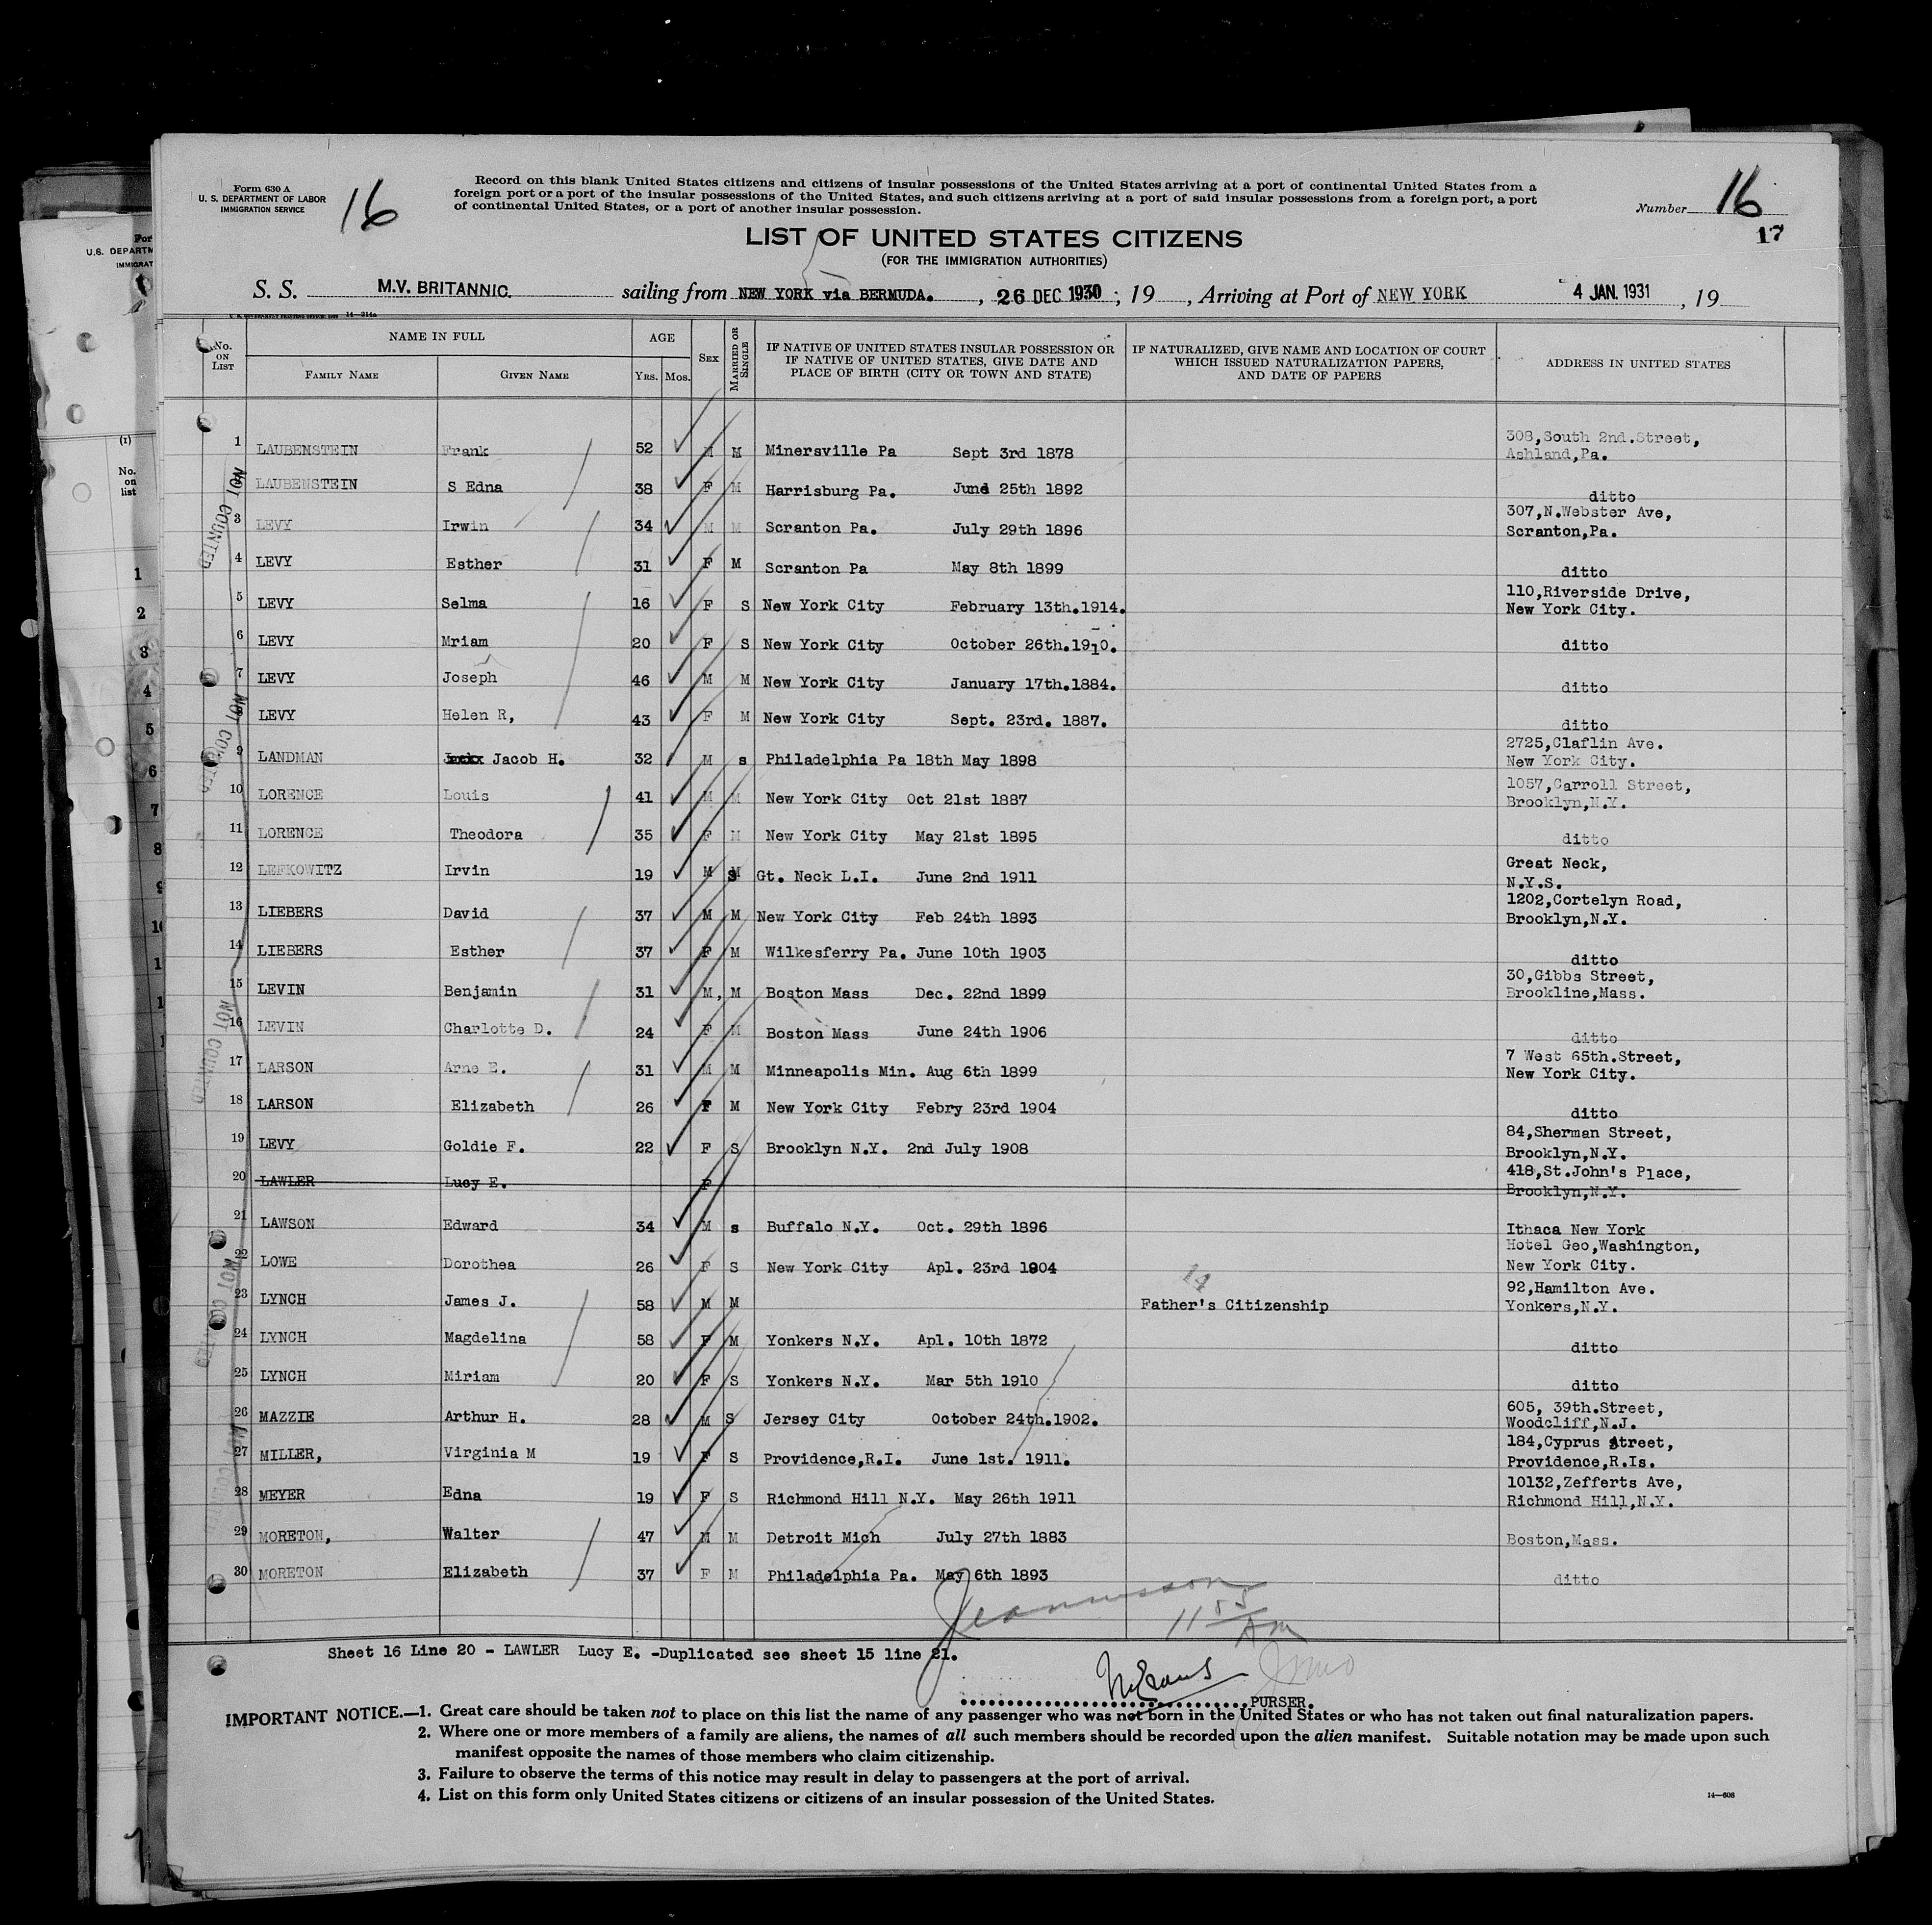 Form 630 A
U. S. DEPARTMENT OF LABOR
IMMIGRATION SERVICE
16
Record on this blank United States citizens and citizens of insular possessions of the United States arriving at a port of continental United States from a
foreign port or a port of the insular possessions of the United States, and such citizens arriving at a port of said insular possessions from a foreign port, a port
of continental United States, or a port of another insular possession.
Number 16
17
LIST OF UNITED STATES CITIZENS
(FOR THE IMMIGRATION AUTHORITIES)
S. S. M.V. BRITANNIC. sailing from NEW YORK via BERMUDA. , 26 DEC 1930 ; 19 , Arriving at Port of NEW YORK 4 JAN. 1931 , 19
No. ON LIST NAME IN FULL FAMILY NAME GIVEN NAME AGE YRS. MOS. SEX MARRIED OR SINGLE IF NATIVE OF UNITED STATES INSULAR POSSESSION OR IF NATIVE OF UNITED STATES, GIVE DATE AND PLACE OF BIRTH (CITY OR TOWN AND STATE) IF NATURALIZED, GIVE NAME AND LOCATION OF COURT WHICH ISSUED NATURALIZATION PAPERS, AND DATE OF PAPERS ADDRESS IN UNITED STATES
1 LAUBENSTEIN Frank 52 M M Minersville Pa Sept 3rd 1878 308,South 2nd.Street, Ashland,Pa.
LAUBENSTEIN S Edna 38 F M Harrisburg Pa. June 25th 1892 ditto
3 LEVY Irwin 34 M M Scranton Pa. July 29th 1896 307,N.Webster Ave, Scranton,Pa.
4 LEVY Esther 31 F M Scranton Pa May 8th 1899 ditto
5 LEVY Selma 16 F S New York City February 13th.1914. 110,Riverside Drive, New York City.
6 LEVY Mriam 20 F S New York City October 26th.1910. ditto
7 LEVY Joseph 46 M M New York City January 17th.1884. ditto
LEVY Helen R, 43 F M New York City Sept. 23rd. 1887. ditto
9 LANDMAN Jacob H. 32 M s Philadelphia Pa 18th May 1898 2725,Claflin Ave. New York City.
10 LORENCE Louis 41 M M New York City Oct 21st 1887 1057,Carroll Street, Brooklyn,N.Y.
11 LORENCE Theodora 35 F M New York City May 21st 1895 ditto
12 LEFKOWITZ Irvin 19 M S Gt. Neck L.I. June 2nd 1911 Great Neck, N.Y.S.
13 LIEBERS David 37 M M New York City Feb 24th 1893 1202,Cortelyn Road, Brooklyn,N.Y.
14 LIEBERS Esther 37 F M Wilkesferry Pa. June 10th 1903 ditto
15 LEVIN Benjamin 31 M, M Boston Mass Dec. 22nd 1899 30,Gibbs Street, Brookline,Mass.
16 LEVIN Charlotte D. 24 F M Boston Mass June 24th 1906 ditto
17 LARSON Arne E. 31 M M Minneapolis Min. Aug 6th 1899 7 West 65th.Street, New York City.
18 LARSON Elizabeth 26 F M New York City Febry 23rd 1904 ditto
19 LEVY Goldie F. 22 F S Brooklyn N.Y. 2nd July 1908 84,Sherman Street, Brooklyn,N.Y.
20 LAWLER Lucy E. F 418,St.John's Place, Brooklyn,N.Y.
21 LAWSON Edward 34 M s Buffalo N.Y. Oct. 29th 1896 Ithaca New York
22 LOWE Dorothea 26 F S New York City Apl. 23rd 1904 Hotel Geo,Washington, New York City.
23 LYNCH James J. 58 M M 14 Father's Citizenship 92,Hamilton Ave. Yonkers,N.Y.
24 LYNCH Magdelina 58 F M Yonkers N.Y. Apl. 10th 1872 ditto
25 LYNCH Miriam 20 F S Yonkers N.Y. Mar 5th 1910 ditto
26 MAZZIE Arthur H. 28 M S Jersey City October 24th.1902. 605, 39th.Street, Woodcliff,N.J.
27 MILLER, Virginia M 19 F S Providence,R.I. June 1st. 1911. 184,Cyprus Street, Providence,R.Is.
28 MEYER Edna 19 F S Richmond Hill N.Y. May 26th 1911 10132,Zefferts Ave, Richmond Hill,N.Y.
29 MORETON, Walter 47 M M Detroit Mich July 27th 1883 Boston,Mass.
30 MORETON Elizabeth 37 F M Philadelphia Pa. May 6th 1893 ditto
NOT COUNTED
NOT COUNTED
NOT COUNTED
11 55 AM
Sheet 16 Line 20 - LAWLER Lucy E. -Duplicated see sheet 15 line 21.
PURSER.
IMPORTANT NOTICE.—1. Great care should be taken not to place on this list the name of any passenger who was not born in the United States or who has not taken out final naturalization papers.
2. Where one or more members of a family are aliens, the names of all such members should be recorded upon the alien manifest. Suitable notation may be made upon such
manifest opposite the names of those members who claim citizenship.
3. Failure to observe the terms of this notice may result in delay to passengers at the port of arrival.
4. List on this form only United States citizens or citizens of an insular possession of the United States.
14—608